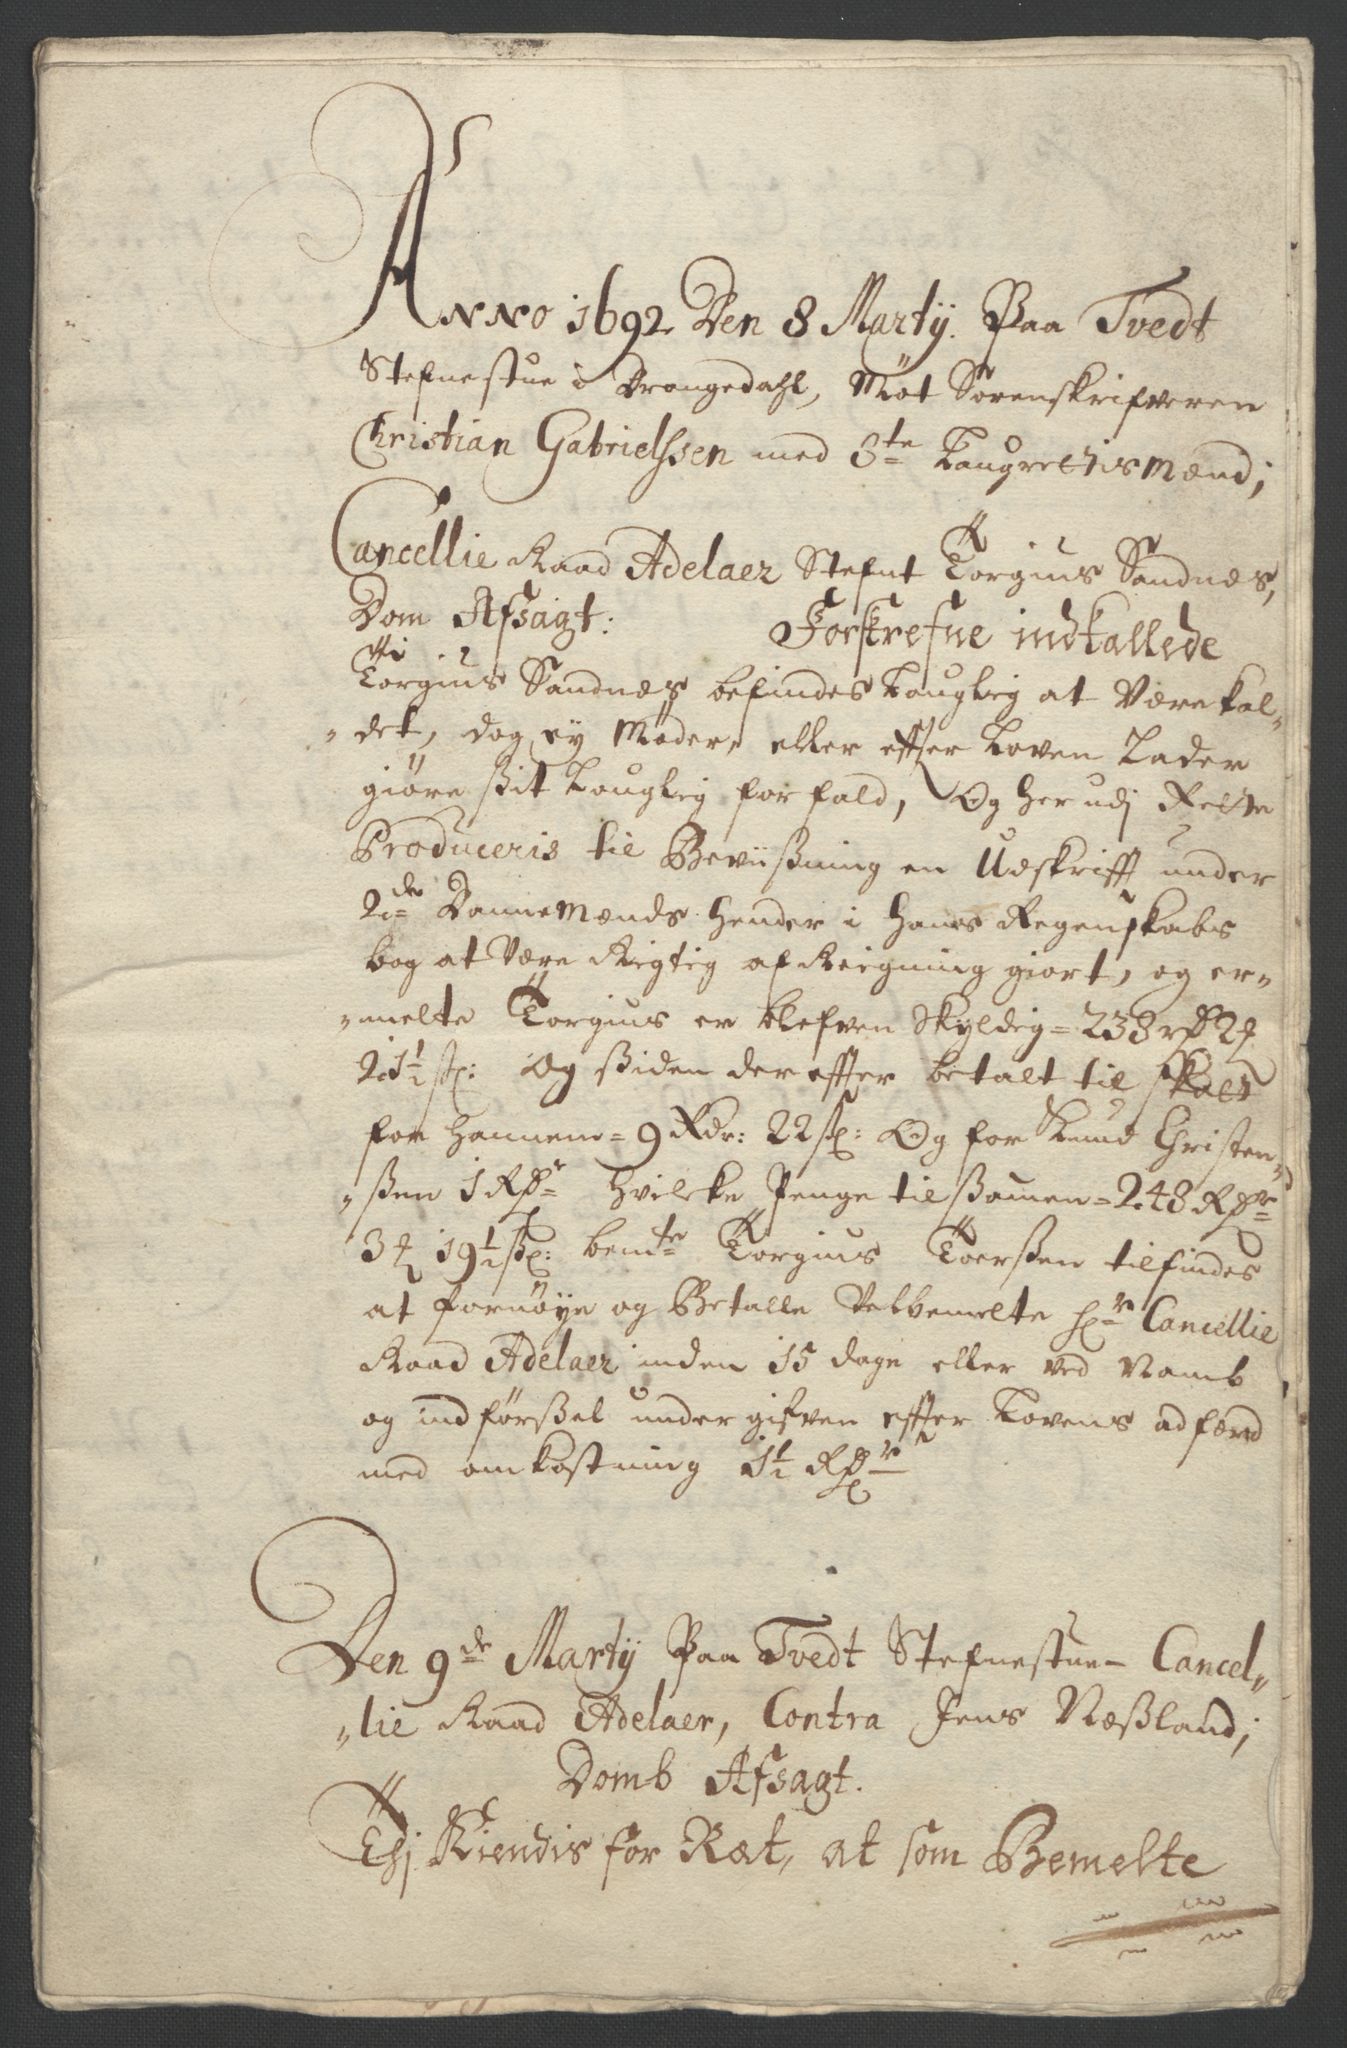 Anno 1692 Den 8 Martij. Paa Tvedt
Stefnestue i Drangedahl, Møt Sorenskrifveren
Christian Gabrielssen med 8te Laugrettismænd;
Cancellie Raad Adelaer Stefnt Torgius Sandnes,
Dom Afsagt: Forskrefne indkallede
Torgius Sandnæs befindes lauglig at Være kal„
„det, dog ey Møder, eller effter Loven Lader
giøre ßit lauglig forfald, Og her udj Rette
Produceris til Beviißning en Udskrifft under
2de Dannemænds hender i hans Regenskabs
bog at Være Rigtig afReigning giort, og er„
„melte Torgius er blefven skyldig = 238 rd 2
2 1½ ß: Og ßiden der effter betalt til skatt
for hannem = 9 Rdr: 22 ß: Og for Knud Christen„
„ßen 1 Rdr hvilcke Penge tilßamen = 248 Rdr
3 19½ ß: bemte Torgius Toerßen tilfindes
at fornøye og Betalle Velbemelte Hr Cancellie
Raad Adelaer inden 15 dage eller ved Namb
og indførßel undergifven effter Lovens adfærd
med omkostning 1½ Rdr
Den 9de Martij Paa Tvedt Stefnestue - Cancel„
„lie Raad Adelaer, Contra Jens Næßland;
Domb Afsagt.
Thj Kiendis for Ræt, at som Bemelte